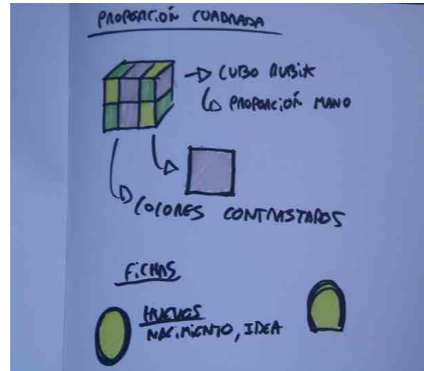 PROPORCIÓN CUADRADA
CUBO RUBIK
PROPORCIÓN MANO
COLORES CONTRASTADOS
FICHAS
HUEVOS
NACIMIENTO, IDEA